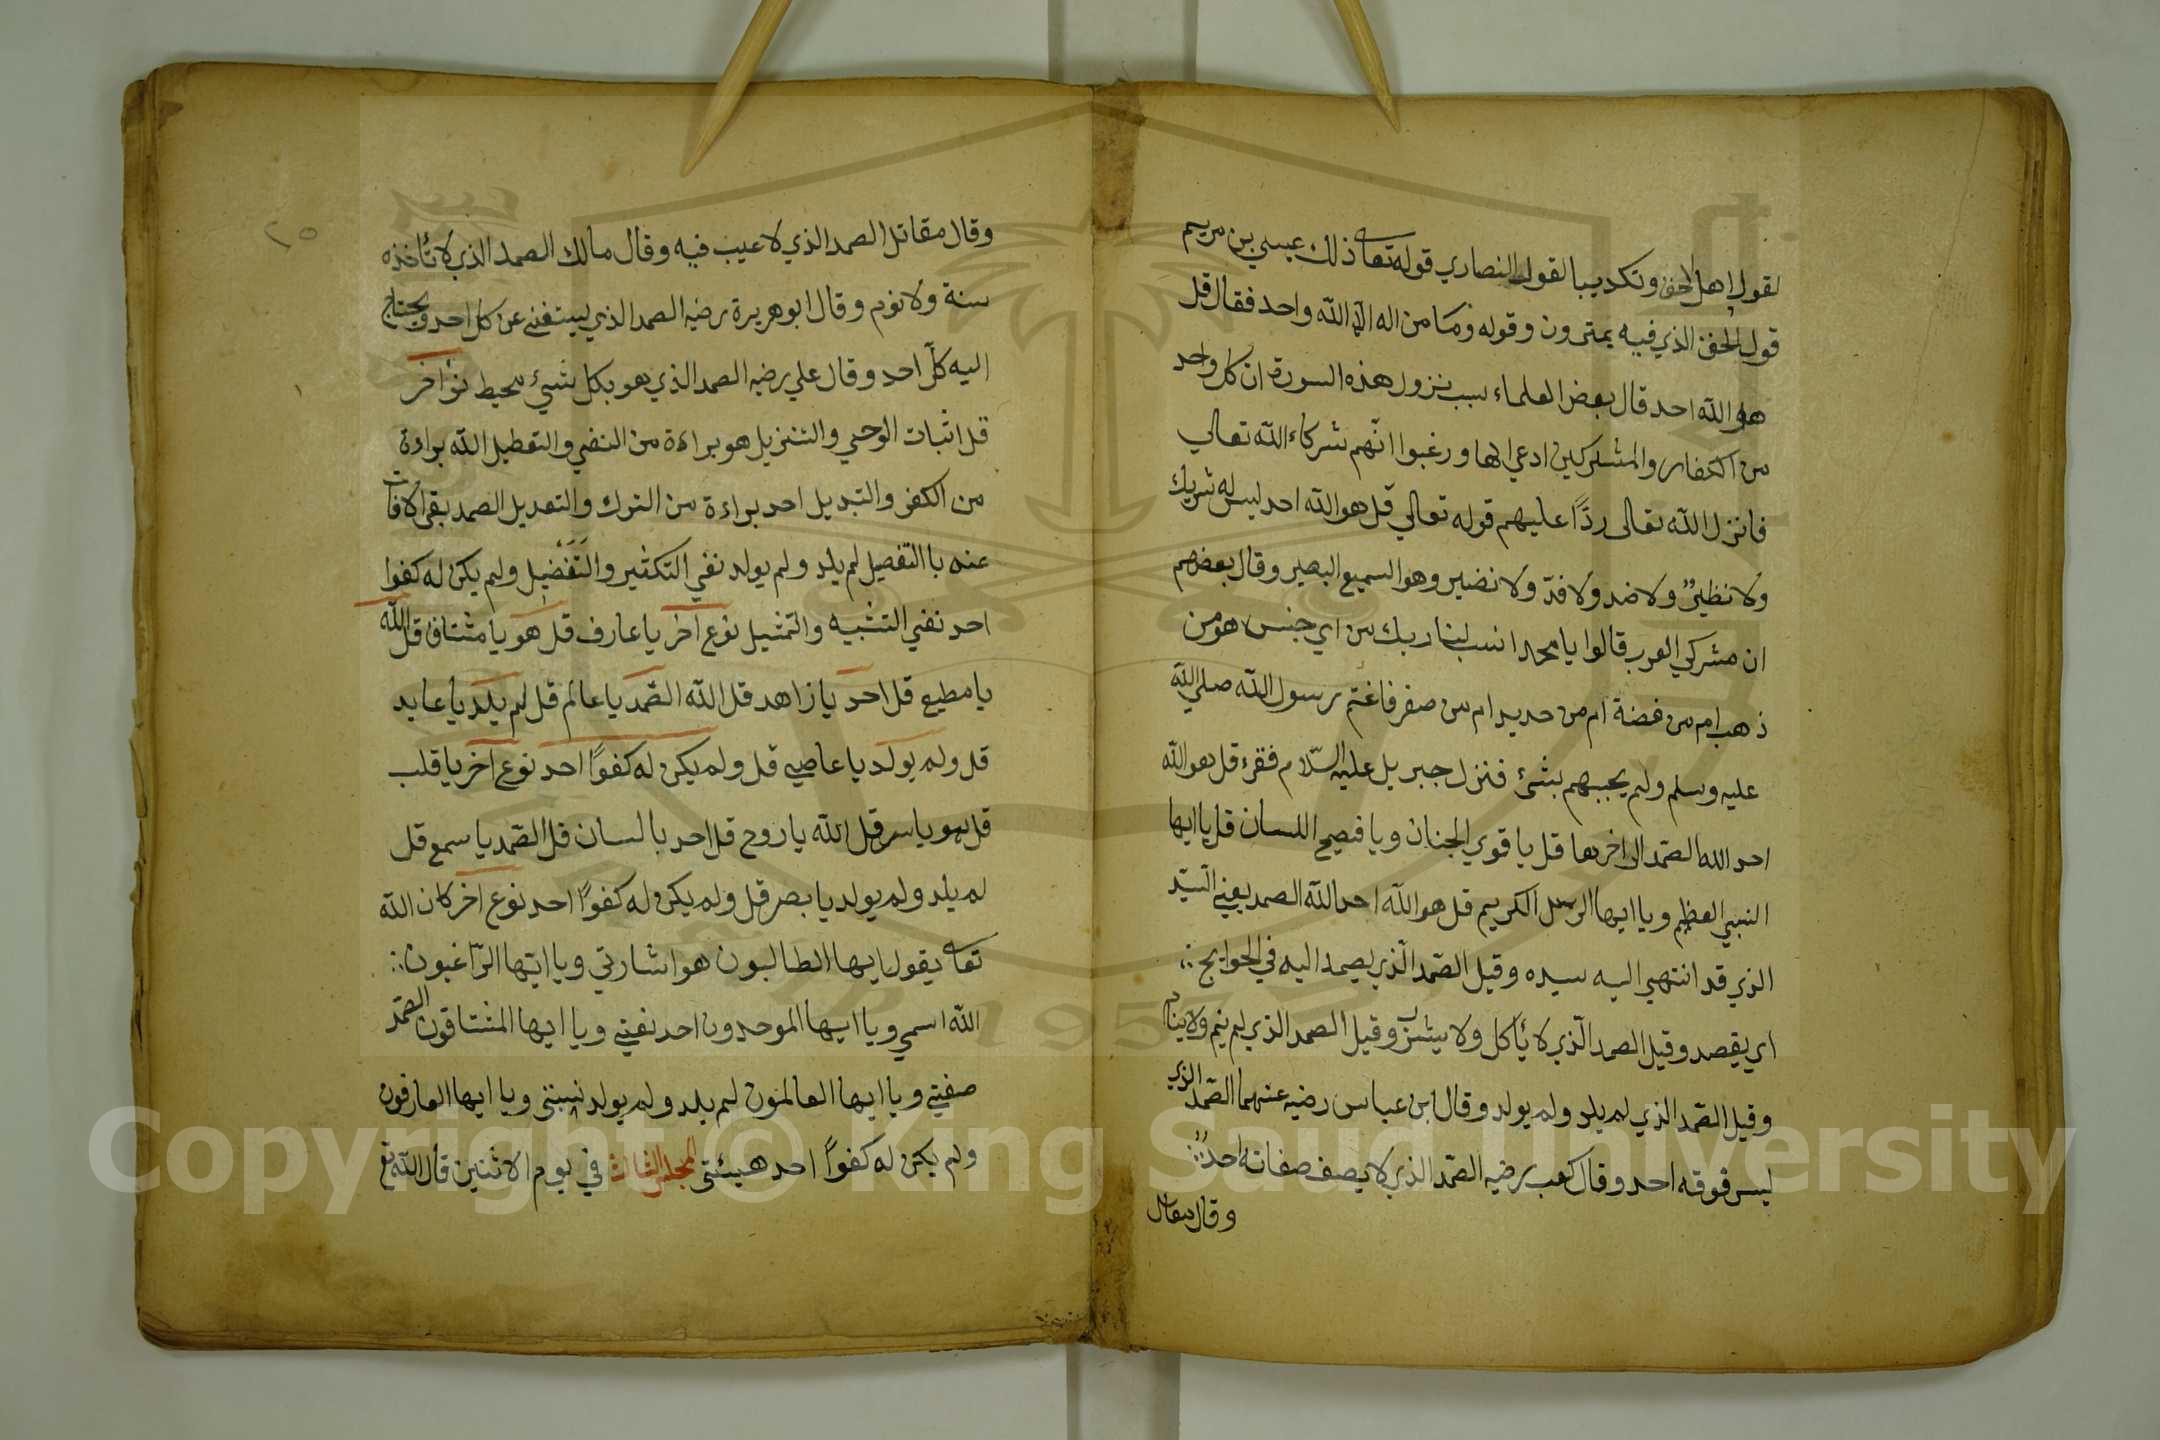 لقول اهل الحق وتكذيبا لقول النصاري قوله تعا ذلك عيسي بن مريم
قول الحق الذي فيه يمترون وقوله وما من اله الا الله واحد فقال قل
هو الله احد قال بعض العلماء سبب نزول هذه السورة ان كل واحد
من الكفار والمشركين ادعي الها ورغبوا انهم شركاء الله تعالي
فانزل الله تعالى ردًا عليهم قوله تعالي قل هو الله احد ليس له شريك
ولا نظيرٌ ولا ضد ولا ندّ ولا نضير وهو السميع البصير وقال بعضهم
ان مشركي العرب قالوا يا محمد انسب لنا ربك من اي جنس هو من
ذهب ام من فضة ام من حديد ام من صفر فاغتم رسول الله صلي الله
عليه وسلم ولم يجبهم بشئ فنزل جبريل عليه السّلام فقرء قل هو الله
احد الله الصّمد الى اخرها قل يا قوي الجنان ويا فصيح اللسان قل يا ايها
النبي العظيم ويا ايها الرسل الكريم قل هو الله احد الله الصمد يعني السيّد
الذي قد انتهي اليه سيده وقيل الصّمد الّذي يصمد اليه في الحوايج
اي يقصد وقيل الصمد الّذي لا يأكل ولا يشرب وقيل الصمد الذي لم ينم ولا ينام
وقيل الصّمد الذي لم يلد ولم يولد وقال ابن عباس رضيه عنهما الصّمد الذي
ليس فوقه احد وقال كعب رضيه الصّمد الذي لا يصف صفاته احدٌ
وقال مقاتل
٢٥
وقال مقاتل الصمد الذي لا عيب فيه وقال مالك الصمد الذي لا تأخذه
سنة ولا نوم وقال ابوهريرة رضيه الصمد الذي يستغني عن كل احد ويحتاج
اليه كلّ احد وقال علي رضيه الصمد الذي هو بكل شيئ محيط نوْ اخر
قل اثبات الوحي والتنزيل هو براءة من النفي والتعطيل الله براءة
من الكفر والتبديل احد براءة من الترك والتعديل الصمد بقي الافات
عنه باالتفصيل لم يلد ولم يولد نفي التكثير والتَفَضيل ولم يكن له كفوا
احد نفي التشبيه والتمثيل نوع اخر يا عارف قل هو يا مشتاق قل الله
يا مطيع قل احد يا زاهد قل الله الصّمد يا عالم قل لم يلد يا عابد
قل ولم يولد يا عاصي قل ولم يكن له كفوًا احد نوع اخر يا قلب
قل هو يا سر قل الله يا روح قل احد يا لسان قل الصّمد يا سمع قل
لم يلد ولم يولد يا بصر قل ولم يكن له كفوًا احد نوع اخر كان الله
تعا يقول ايها الطالبون هو اشارتي ويا ايّها الرّاغبون
الله اسمي ويا ايها الموحدون احد نفيي ويا ايها المشتاقون الصّمد
صفتي ويا ايها العالمون لم يلد ولم يولد نسبتي ويا ايها العارفون
ولم يكن له كفوًا احد هيئتي المجلس الثالث في يوم الاثنين قال الله تع
Copyright © King Saud University
1957